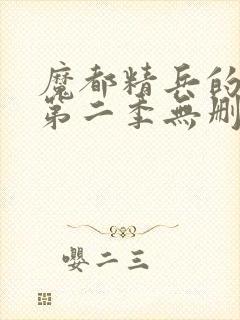 魔都精兵的
第二季無刪
嬰二三